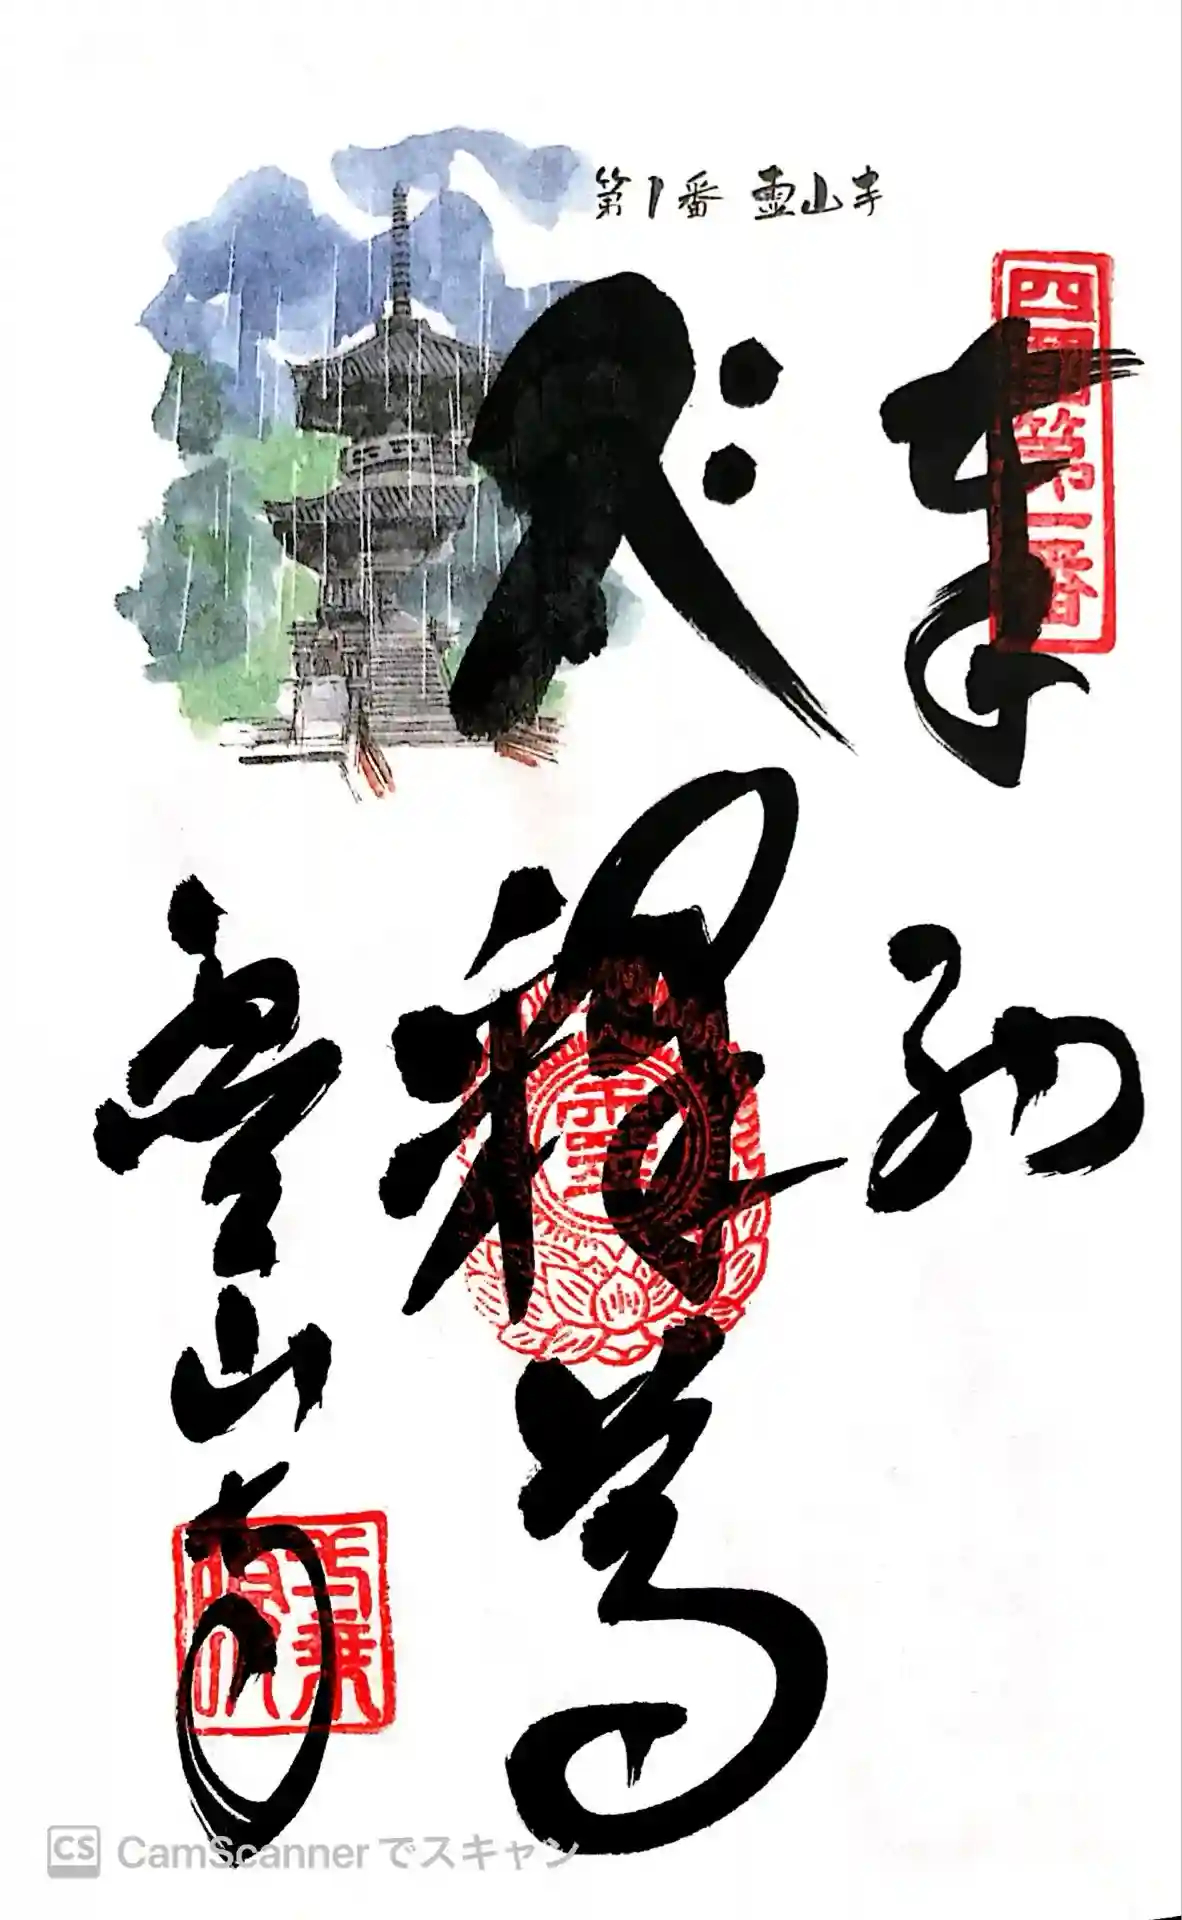 第1番 霊山寺
四國第一番
奉納
釋尊
霊
霊山寺
CS CamScanner でスキャン